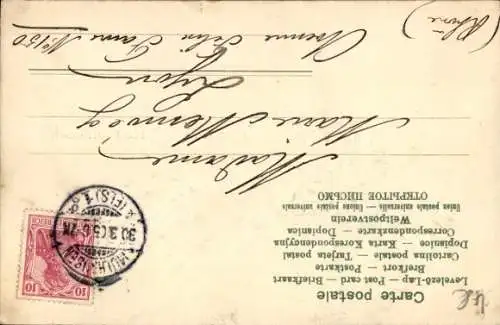 Carte postale
Levelező-Lap — Post card — Briefkaart
Brefkort — Postkarte — Dopisnice
Cartolina postale — Tarjeta postal
Dopisnice — Karta Korespondencyjna
Correspondenzkarte — Dopisnica
Weltpostverein
Union postale universelle — Unión postal universal
ОТКРЫТОЕ ПИСЬМО
Madame
Marie
Lyon
Avenue Félix Faure No 150
(Rhône)
30.3.05
(ELS)
10 10